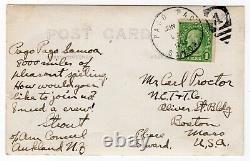 POST CARD
PAGO PAGO
Pago Pago Samoa
8000 miles of
pleasant sailing
How would you
like to join us
Need a crew!
Strout
c/o Am Consul
Auckland NZ
Mr Carl Proctor
N.E.T.&T. Co
Oliver St. Bldg
Boston
Please Mass
forward U.S.A.